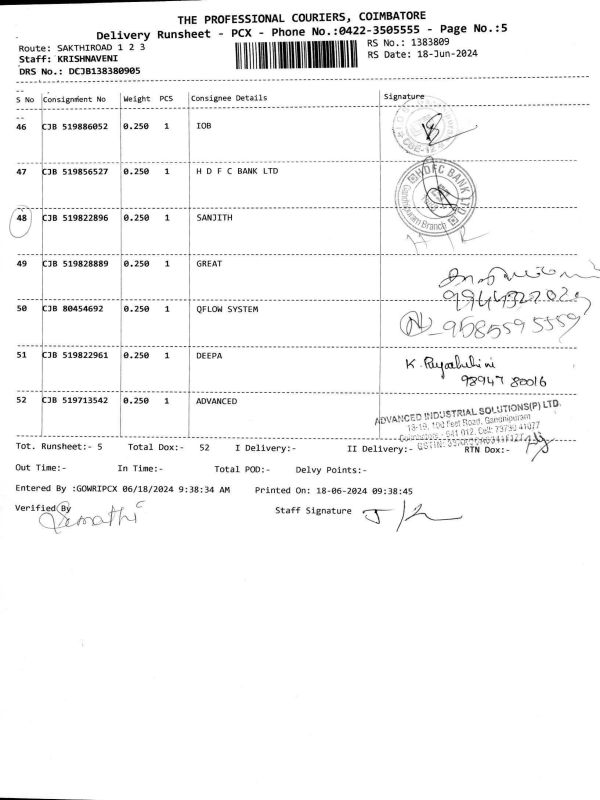 THE PROFESSIONAL COURIERS, COIMBATORE
Delivery Runsheet - PCX - Phone No.:0422-3505555 - Page No.:5
Route: SAKTHIROAD 1 2 3
RS No.: 1383809
Staff: KRISHNAVENI
RS Date: 18-Jun-2024
DRS No.: DCJB138380905
S No Consignment No Weight PCS Consignee Details Signature
46 CJB 519886052 0.250 1 IOB
47 CJB 519856527 0.250 1 H D F C BANK LTD
HDFC BANK LTD
Gandhipuram Branch
48 CJB 519822896 0.250 1 SANJITH
49 CJB 519828889 0.250 1 GREAT
50 CJB 80454692 0.250 1 QFLOW SYSTEM
9585595559
51 CJB 519822961 0.250 1 DEEPA
98947 80016
52 CJB 519713542 0.250 1 ADVANCED
ADVANCED INDUSTRIAL SOLUTIONS(P) LTD.
100 Feet Road, Gandhipuram
Tot. Runsheet:- 5 Total Dox:- 52 I Delivery:- II Delivery:- RTN Dox:-
Out Time:- In Time:- Total POD:- Delvy Points:-
Entered By :GOWRIPCX 06/18/2024 9:38:34 AM Printed On: 18-06-2024 09:38:45
Verified By Staff Signature